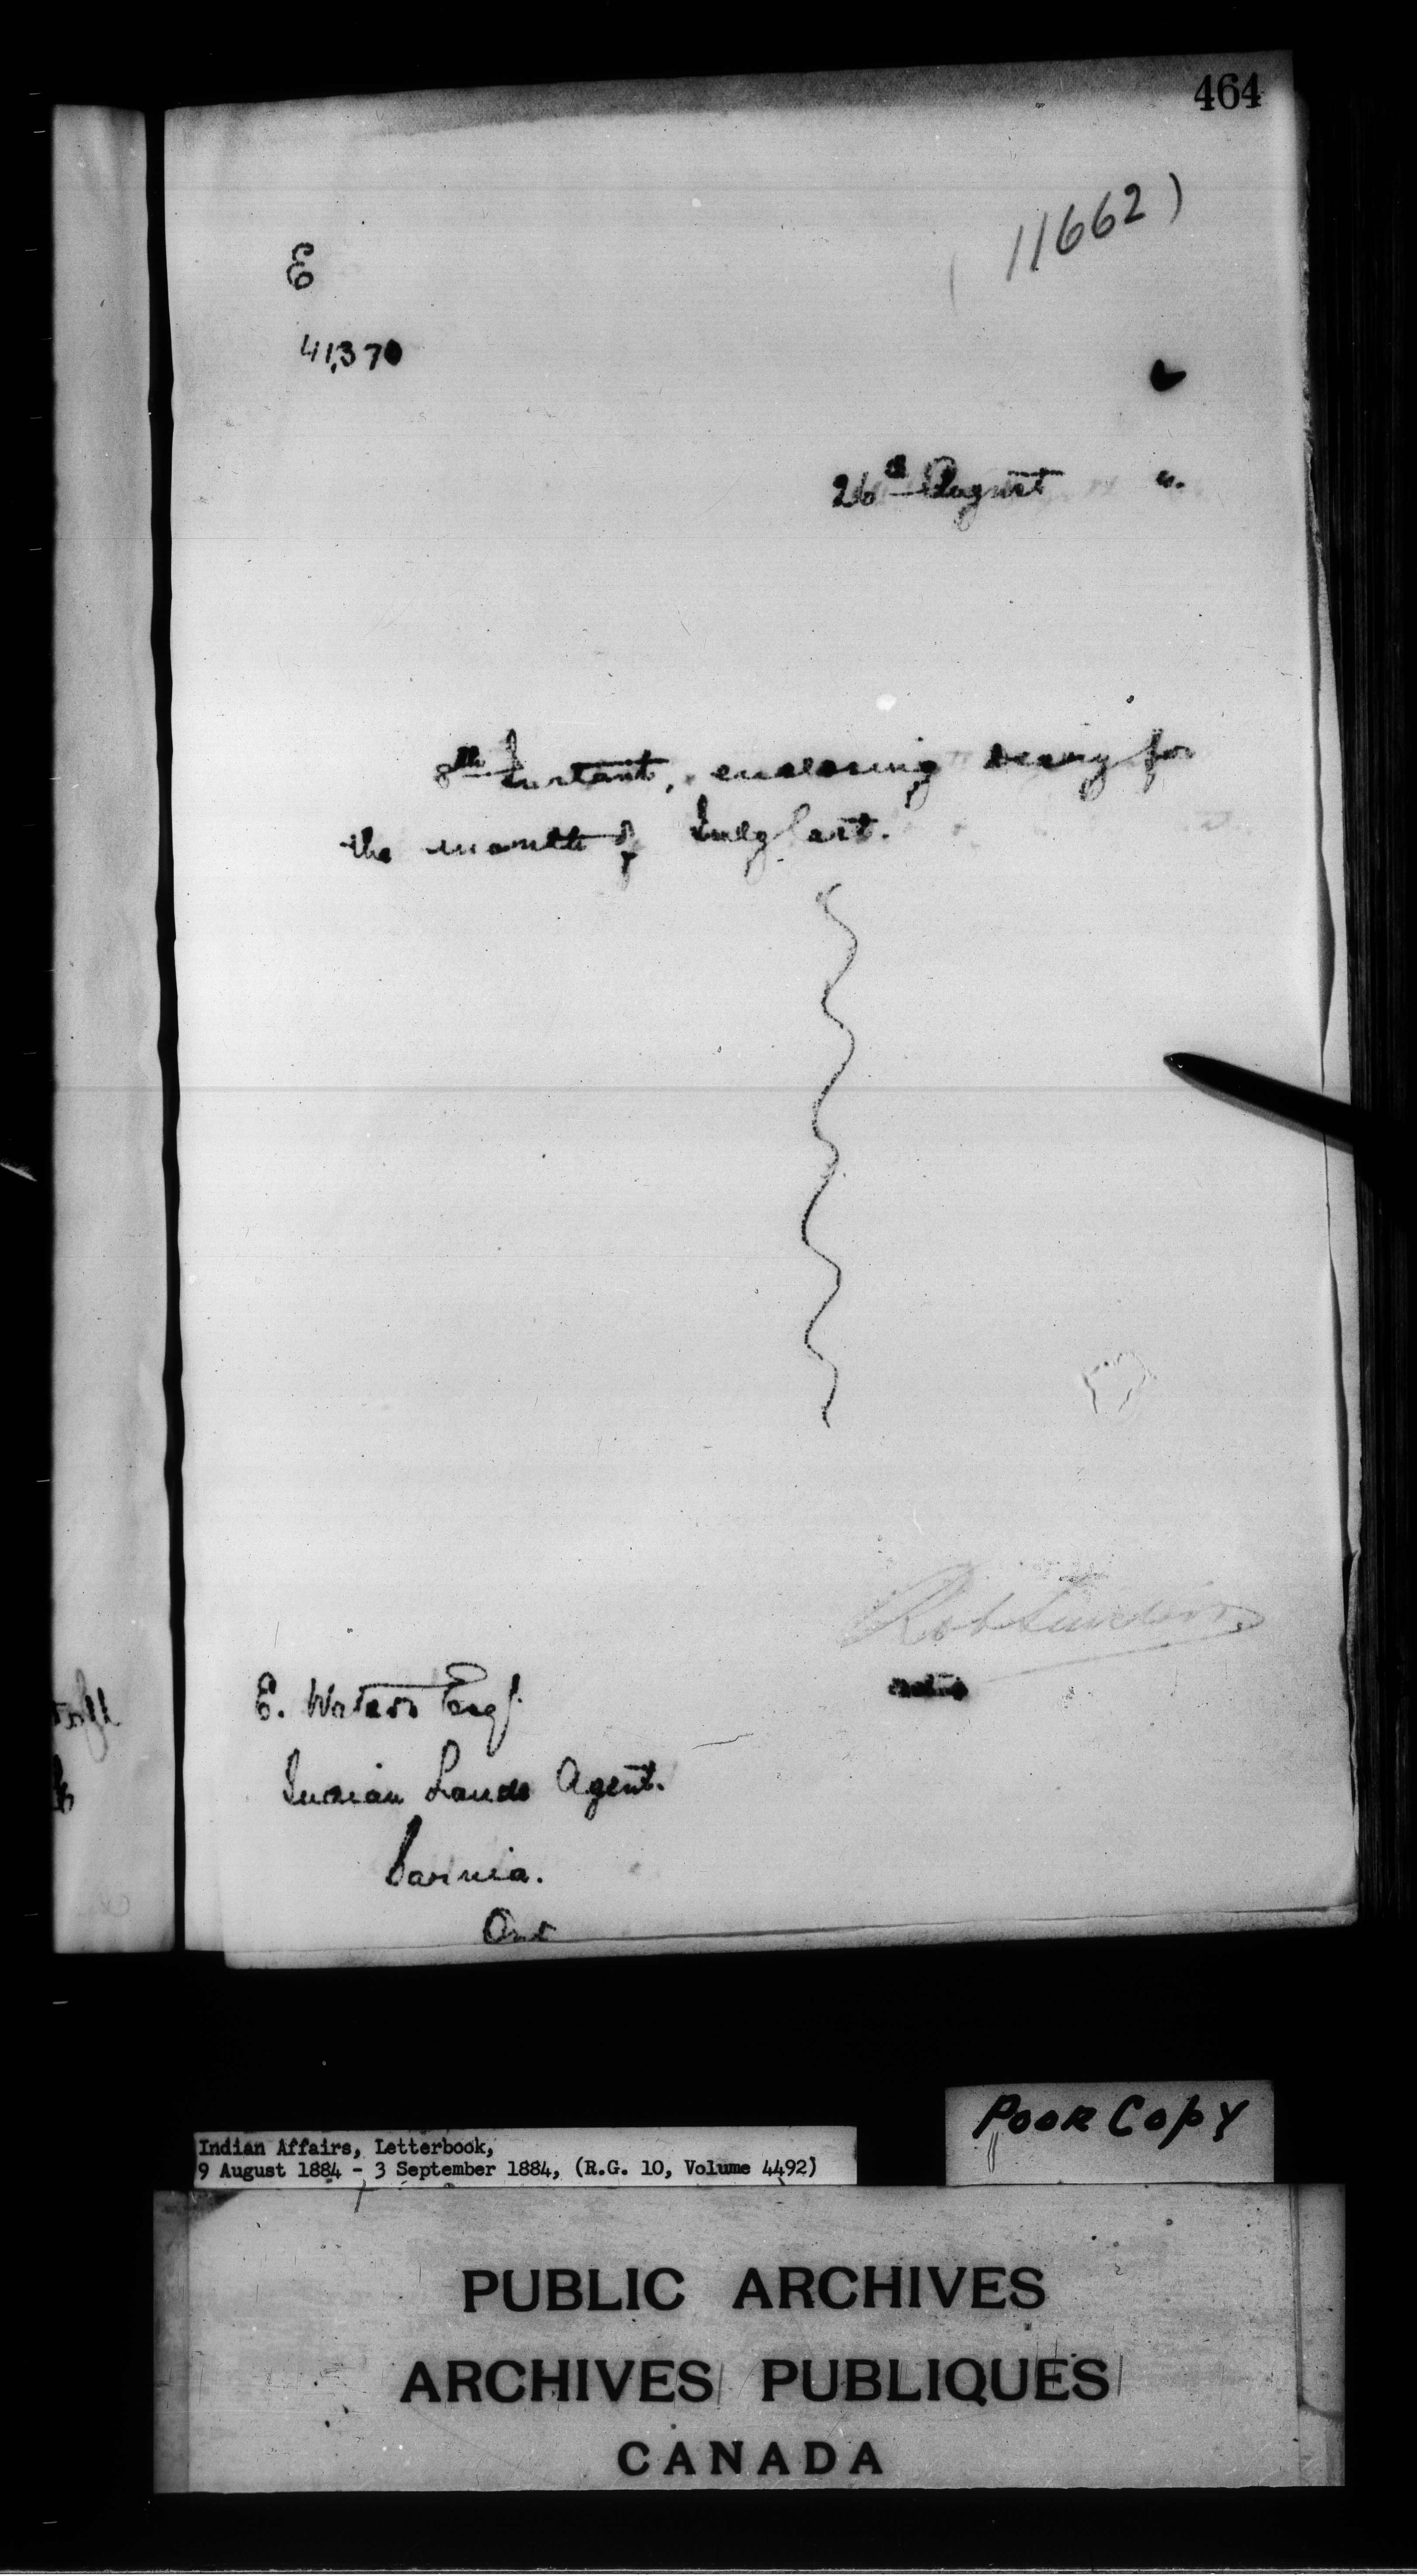 464
11662)
E
41,370
26th August 4.
8th Instant, enclosing diary for
the month of July last.
E. Watson Esq.
Indian Lands Agent.
Sarnia.
Ont
Poor Copy
Indian Affairs, Letterbook,
9 August 1884 - 3 September 1884, (R.G. 10, Volume 4492)
PUBLIC ARCHIVES
ARCHIVES PUBLIQUES
CANADA